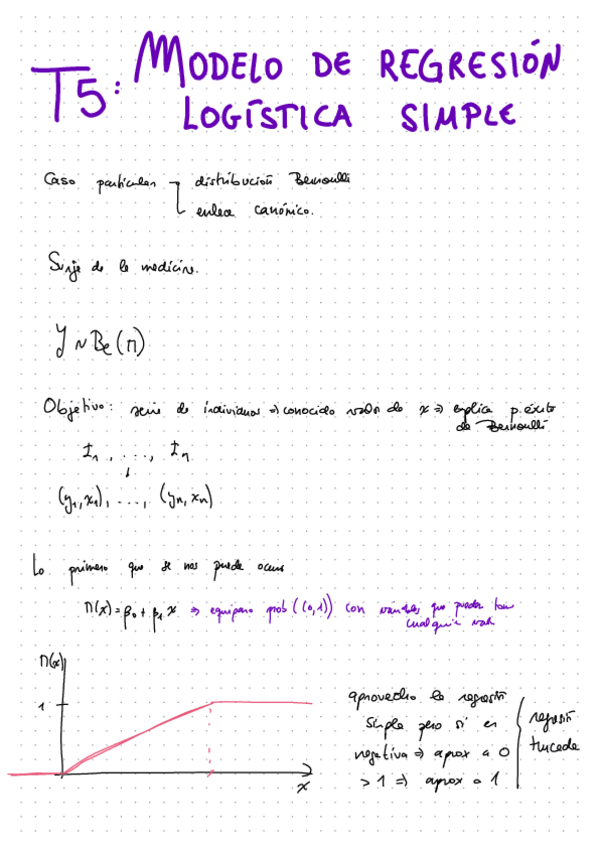 T5: MODELO DE REGRESIÓN
LOGÍSTICA SIMPLE
Caso particular → distribución Bernoulli
enlace canónico.
Surje de la medicina.
Y ~ Be(π)
Objetivo: serie de individuos ⇒ conocido valor de x ⇒ explica p. éxito
de Bernoulli
I₁, ..., Iₙ
↓
(y₁,x₁), ..., (yₙ,xₙ)
Lo primero que se nos puede ocurrir
π(x) = β₀ + β₁ x ⇒ equiparo prob ((0,1)) con variables que pueden tomar
cualquier valor
π(x)
1
x
aprovecho la regresión
simple pero si es
negativa ⇒ aprox a 0
> 1 ⇒ aprox a 1
regresión
truncada